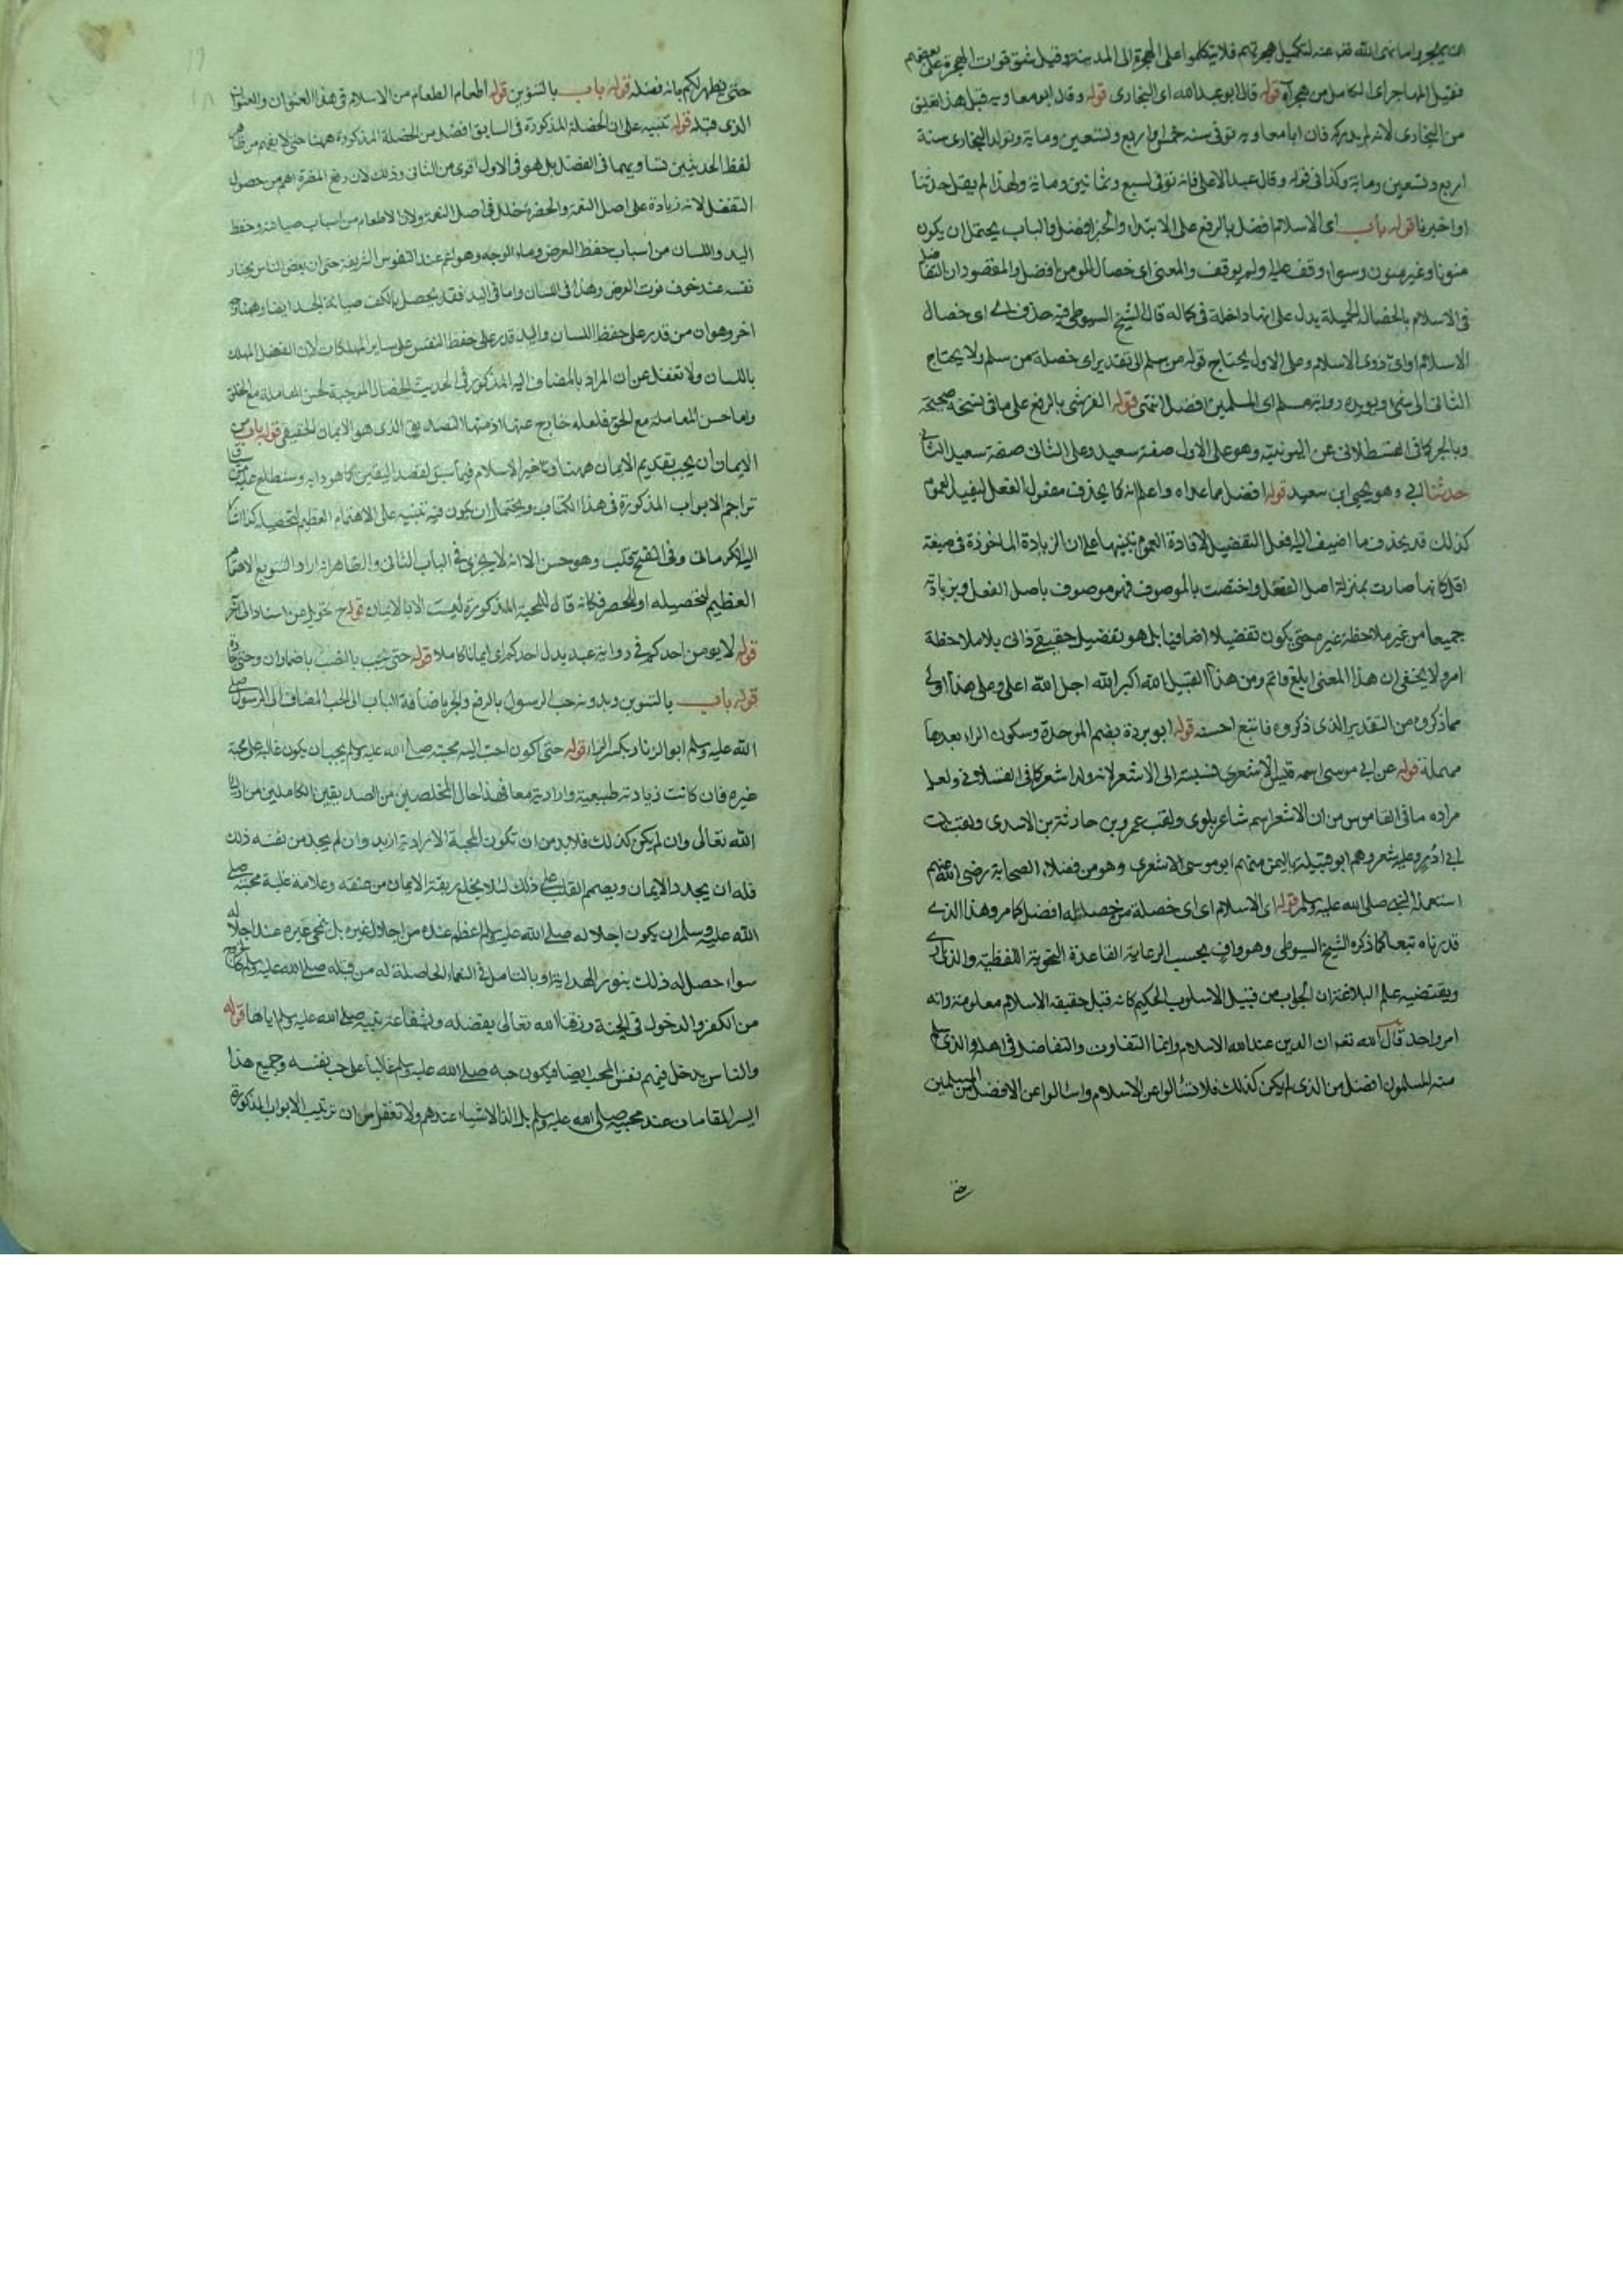 ان يهجر وا ما نهى الله عنه لتكميل هجرتهم فلا يتكلموا على الهجرة الى المدينة وقيل شق فوات الهجرة على بعضهم
فقيل المهاجر اى الكامل من هجر آه قوله قال ابو عبد الله اى البخارى قوله وقال ابو معاويه قيل هذا تعليق
من البخارى لانه لم يدركه فان ابا معاويه توفى سنه خمس او اربع وتسعين ومايه وتولد البخارى سنة
اربع وتسعين وماية وكذا فى قوله وقال عبد الاعلى فانه توفى لسبع وثمانين وماية ولهذا لم يقل حدثنا
او اخبرنا قوله باب اى الاسلام افضل بالرفع على الابتداء والخبر افضل والباب يحتمل ان يكون
منونا وغير منون وسواء وقف عليه ولم يوقف والمعنى اى خصال المومن افضل والمقصود ان التفاضل
فى الاسلام بالخصال الجميلة يدل على انها داخلة فى كماله قال الشيخ السيوطى فيه حذف اى اى خصال
الاسلام او اى ذوى الاسلام وعلى الاول يحتاج قوله من سلم الى تقدير اى خصلة من سلم ولا يحتاج
الثانى الى شئ ويويده رواية مسلم اى المسلمين افضل انتهى قوله القرشى بالرفع على ما فى نسخة صحيحة
وبالجر كما فى القسطلانى عن اليونينيه وهو على الاول صفة سعيد وعلى الثانى صفة سعيد الثانى
حدثنا ابى وهو يحيى ابن سعيد قوله افضل مما عداه واعلم انه كما يحذف مفعول الفعل ليفيد العموم
كذلك قد يحذف ما اضيف اليه افعل التفضيل لافادة العموم تنبيها على ان الزيادة الماخوذة فى صيغة
افعل كانها صارت بمنزلة اصل الفعل واختصت بالموصوف فهو موصوف باصل الفعل وبزيادة
جميعا من غير ملاحظة غيره حتى يكون تفضيلا اضافيا بل هو تفضيل حقيقى ذاتى بلا ملاحظة
امر ولا يخفى ان هذا المعنى ابلغ واتم ومن هذا القبيل الله اكبر الله اجل الله اعلى وعلى هذا اولى
مما ذكروه من التقدير الذى ذكروه فاتبع احسنه قوله ابو بردة بضم الموحدة وسكون الراء بعدها
مهملة قوله عن ابى موسى اسمه قيس الاشعرى فنسبته الى الاشعر لانه ولد اشعر كما فى القسطلانى ولعل
مراده ما فى القاموس من ان الاشعر اسم شاعر بلوى ولقب عمرو بن حارثة بن الاسدى ولقب نبت
ابن ادد وعليه شعر وهم ابو قبيلة باليمن منهم ابو موسى الاشعرى وهو من فضلاء الصحابة رضى الله عنهم
استعمله النبى صلى الله عليه وسلم قوله اى الاسلام اى اى خصلة من خصاله افضل كما مر وهذا الذى
قدرناه تبعا كما ذكره الشيخ السيوطى وهو واف بحسب الرعاية القاعدة النحوية اللفظية والذى
ويقتضيه علم البلاغة ان الجواب من قبيل الاسلوب الحكيم كانه قيل حقيقه الاسلام معلومة وانه
امر واحد قال الله تعـ ان الدين عند الله الاسلام وانما التفاوت والتفاضل فى اهله والذى سلم
منه المسلمون افضل من الذى لم يكن كذلك فلا تسالوا عن الاسلام واسالوا عن الافضل من المسلمين
حتى
حتى يظهر لكم بانه فضله قوله باب بالتنوين قوله اطعام الطعام من الاسلام فى هذا العنوان والعنوان
الذى قبله قوله تنبيه على ان الخصلة المذكورة فى السابق افضل من الخصلة المذكورة ههنا حتى لا يفهم من ظاهر
لفظ الحديثين تساويهما فى الفضل بل هو فى الاول اقوى من الثانى وذلك لان دفع المضرة اهم من حصول
التفضل لانه زيادة على اصل النعمة والمضرة خلل فى اصل النعمة ولان الاطعام من اسباب صيانته وحفظ
اليد واللسان من اسباب حفظ العرض وماء الوجه وهو اتم عند النفوس الشريفة حتى ان بعض الناس يختار
نفسه عند خوف فوت العرض وهذا فى اللسان واما فى اليد فقد يحصل بالكف صيانة الجسد ايضا وههنا وجه
اخر وهو ان من قدر على حفظ اللسان واليد قدر على حفظ النفس على ساير المهلكات لان الفضل المهلك
باللسان ولا تغفل عن ان المراد بالمضاف اليه المذكور فى الحديث الخصال الموجبة لحسن المعاملة مع الخلق
واما حسن المعاملة مع الحق فلعله خارج عنها لازمتها التصديق الذى هو الايمان الحقيقى قوله باب من
الايمان ان يحب بتقديم الايمان ههنا وتاخير الاسلام فيما سبق لقصد التفنن كما هو دابه وستطلع عليه من
تراجم الابواب المذكورة فى هذا الكتاب ويحتمل ان يكون فيه تنبيه على الاهتمام العظيم لتحصيله كذا اشار
اليه الكرمانى وفى الفتح قلت وهو حسن الا انه لا يجرى فى الباب الثانى والظاهر انه اراد التنويع الاهتمام
العظيم لتحصيله او للحصر فكانه قال المحبة المذكورة ليست الا بالايمان قوله ح تحويل من اسناد الى اخر
قوله لا يومن احدكم فى رواية عبد بدل احدكم اى ايمانا كاملا قوله حتى يحب بالنصب باضمار ان وحتى جارة
قوله باب بالتنوين وبدونه حب الرسول بالرفع والجر باضافة الباب الى الحب المضاف الى الرسول صلى
الله عليه وسلم ابو الزناد بكسر الزاء قوله حتى اكون احب اليه محبته صلى الله عليه وسلم يجب ان يكون غالبة على محبة
غيره فان كانت زيادته طبيعية وارادية معا فهذا حال المخلصين من الصديقين الكاملين من اولياء
الله تعالى وان لم يكن كذلك فلا بد من ان تكون المحبة الارادية ازيد وان لم يجد من نفسه ذلك
فله ان يجدد الايمان ويصمم القلب على ذلك لئلا يخلع ربقة الايمان من عنقه وعلامة غلبة محبته صلى
الله عليه وسلم ان يكون اجلاله صلى الله عليه وسلم اعظم عنده من اجلال غيره بل يمحى غيره عند اجلاله
سواء حصل له ذلك بنور الهداية او بالتامل فى النعماء الحاصلة له من قبله صلى الله عليه وسلم كالخروج
من الكفر والدخول فى الجنة رزقنا الله تعالى بفضله وشفاعة نبيه صلى الله عليه وسلم اياها قوله
والناس يدخل فيهم نفس المحب ايضا فيكون حبه صلى الله عليه وسلم غالبا على حب نفسه وجميع هذا
ايسر المقامات عند محبيه صلى الله عليه وسلم بل الذ الاشياء عندهم ولا تغفل من ان ترتيب الابواب المذكورة